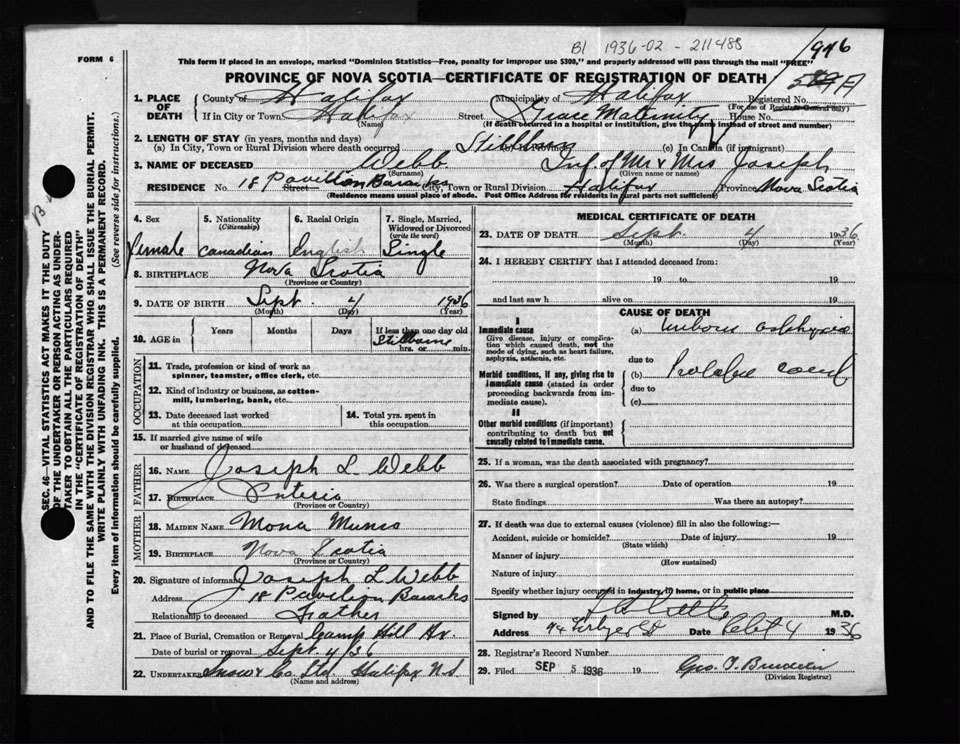 B1 1936-02 - 211488
946
FORM 6
This form if placed in an envelope, marked "Dominion Statistics—Free, penalty for improper use $300," and properly addressed will pass through the mail "FREE"
PROVINCE OF NOVA SCOTIA—CERTIFICATE OF REGISTRATION OF DEATH
1. PLACE OF DEATH County of Halifax Municipality of Halifax Registered No.
(For use of Registrar General only)
If in City or Town Halifax Street Grace Maternity House No.
(Name) (If death occurred in a hospital or institution, give the name instead of street and number)
2. LENGTH OF STAY (in years, months and days)
(a) In City, Town or Rural Division where death occurred Stillborn (c) In Canada (if immigrant)
3. NAME OF DECEASED Webb Inf of Mr & Mrs Joseph
(Surname) (Given name or names)
RESIDENCE No. 18 Street Pavilion Barracks City, Town or Rural Division Halifax Province Nova Scotia
(Residence means usual place of abode. Post Office Address for residents in rural parts not sufficient)
SEC. 46—VITAL STATISTICS ACT MAKES IT THE DUTY
OF THE UNDERTAKER OR PERSON ACTING AS UNDER-
TAKER TO OBTAIN ALL THE PARTICULARS REQUIRED
IN THE "CERTIFICATE OF REGISTRATION OF DEATH"
AND TO FILE THE SAME WITH THE DIVISION REGISTRAR WHO SHALL ISSUE THE BURIAL PERMIT.
WRITE PLAINLY WITH UNFADING INK. THIS IS A PERMANENT RECORD.
Every item of information should be carefully supplied. (See reverse side for instructions.)
4. Sex 5. Nationality (Citizenship) 6. Racial Origin 7. Single, Married, Widowed or Divorced (write the word)
Female Canadian English Single
8. BIRTHPLACE Nova Scotia
(Province or Country)
9. DATE OF BIRTH Sept 4 1936
(Month) (Day) (Year)
10. AGE Years Months Days If less than one day old
Stillborn
hrs. or min.
OCCUPATION
11. Trade, profession or kind of work as
spinner, teamster, office clerk, etc.
12. Kind of industry or business, as cotton-
mill, lumbering, bank, etc.
13. Date deceased last worked
at this occupation
14. Total yrs. spent in
this occupation
15. If married give name of wife
or husband of deceased
FATHER
16. NAME Joseph L. Webb
17. BIRTHPLACE Ontario
(Province or Country)
MOTHER
18. MAIDEN NAME Mona Munro
19. BIRTHPLACE Nova Scotia
(Province or Country)
20. Signature of informant Joseph L Webb
Address 18 Pavilion Barracks
Relationship to deceased Father
21. Place of Burial, Cremation or Removal Camp Hill Hx.
Date of burial or removal Sept 4/36
22. UNDERTAKER Snow & Co. Ltd. Halifax N.S
(Name and address)
MEDICAL CERTIFICATE OF DEATH
23. DATE OF DEATH Sept. 4 1936
(Month) (Day) (Year)
24. I HEREBY CERTIFY that I attended deceased from:
19 to 19
and last saw h alive on 19
CAUSE OF DEATH
I
Immediate cause
Give disease, injury or complica-
tion which caused death, not the
mode of dying, such as heart failure,
asphyxia, asthenia, etc.
(a) Unborn asphyxia
due to
Morbid conditions, if any, giving rise to
immediate cause (stated in order
proceeding backwards from im-
mediate cause).
(b) Prolapse cord
due to
(c)
II
Other morbid conditions (if important)
contributing to death but not
causally related to immediate cause.
25. If a woman, was the death associated with pregnancy?
26. Was there a surgical operation? Date of operation 19
State findings Was there an autopsy?
27. If death was due to external causes (violence) fill in also the following:—
Accident, suicide or homicide? Date of injury 19
(State which)
Manner of injury
(How sustained)
Nature of injury
Specify whether injury occurred in industry, in home, or in public place
Signed by M.D.
Address Date Sept 4 1936
28. Registrar's Record Number
29. Filed SEP 5 1936 19 Geo. T.
(Division Registrar)